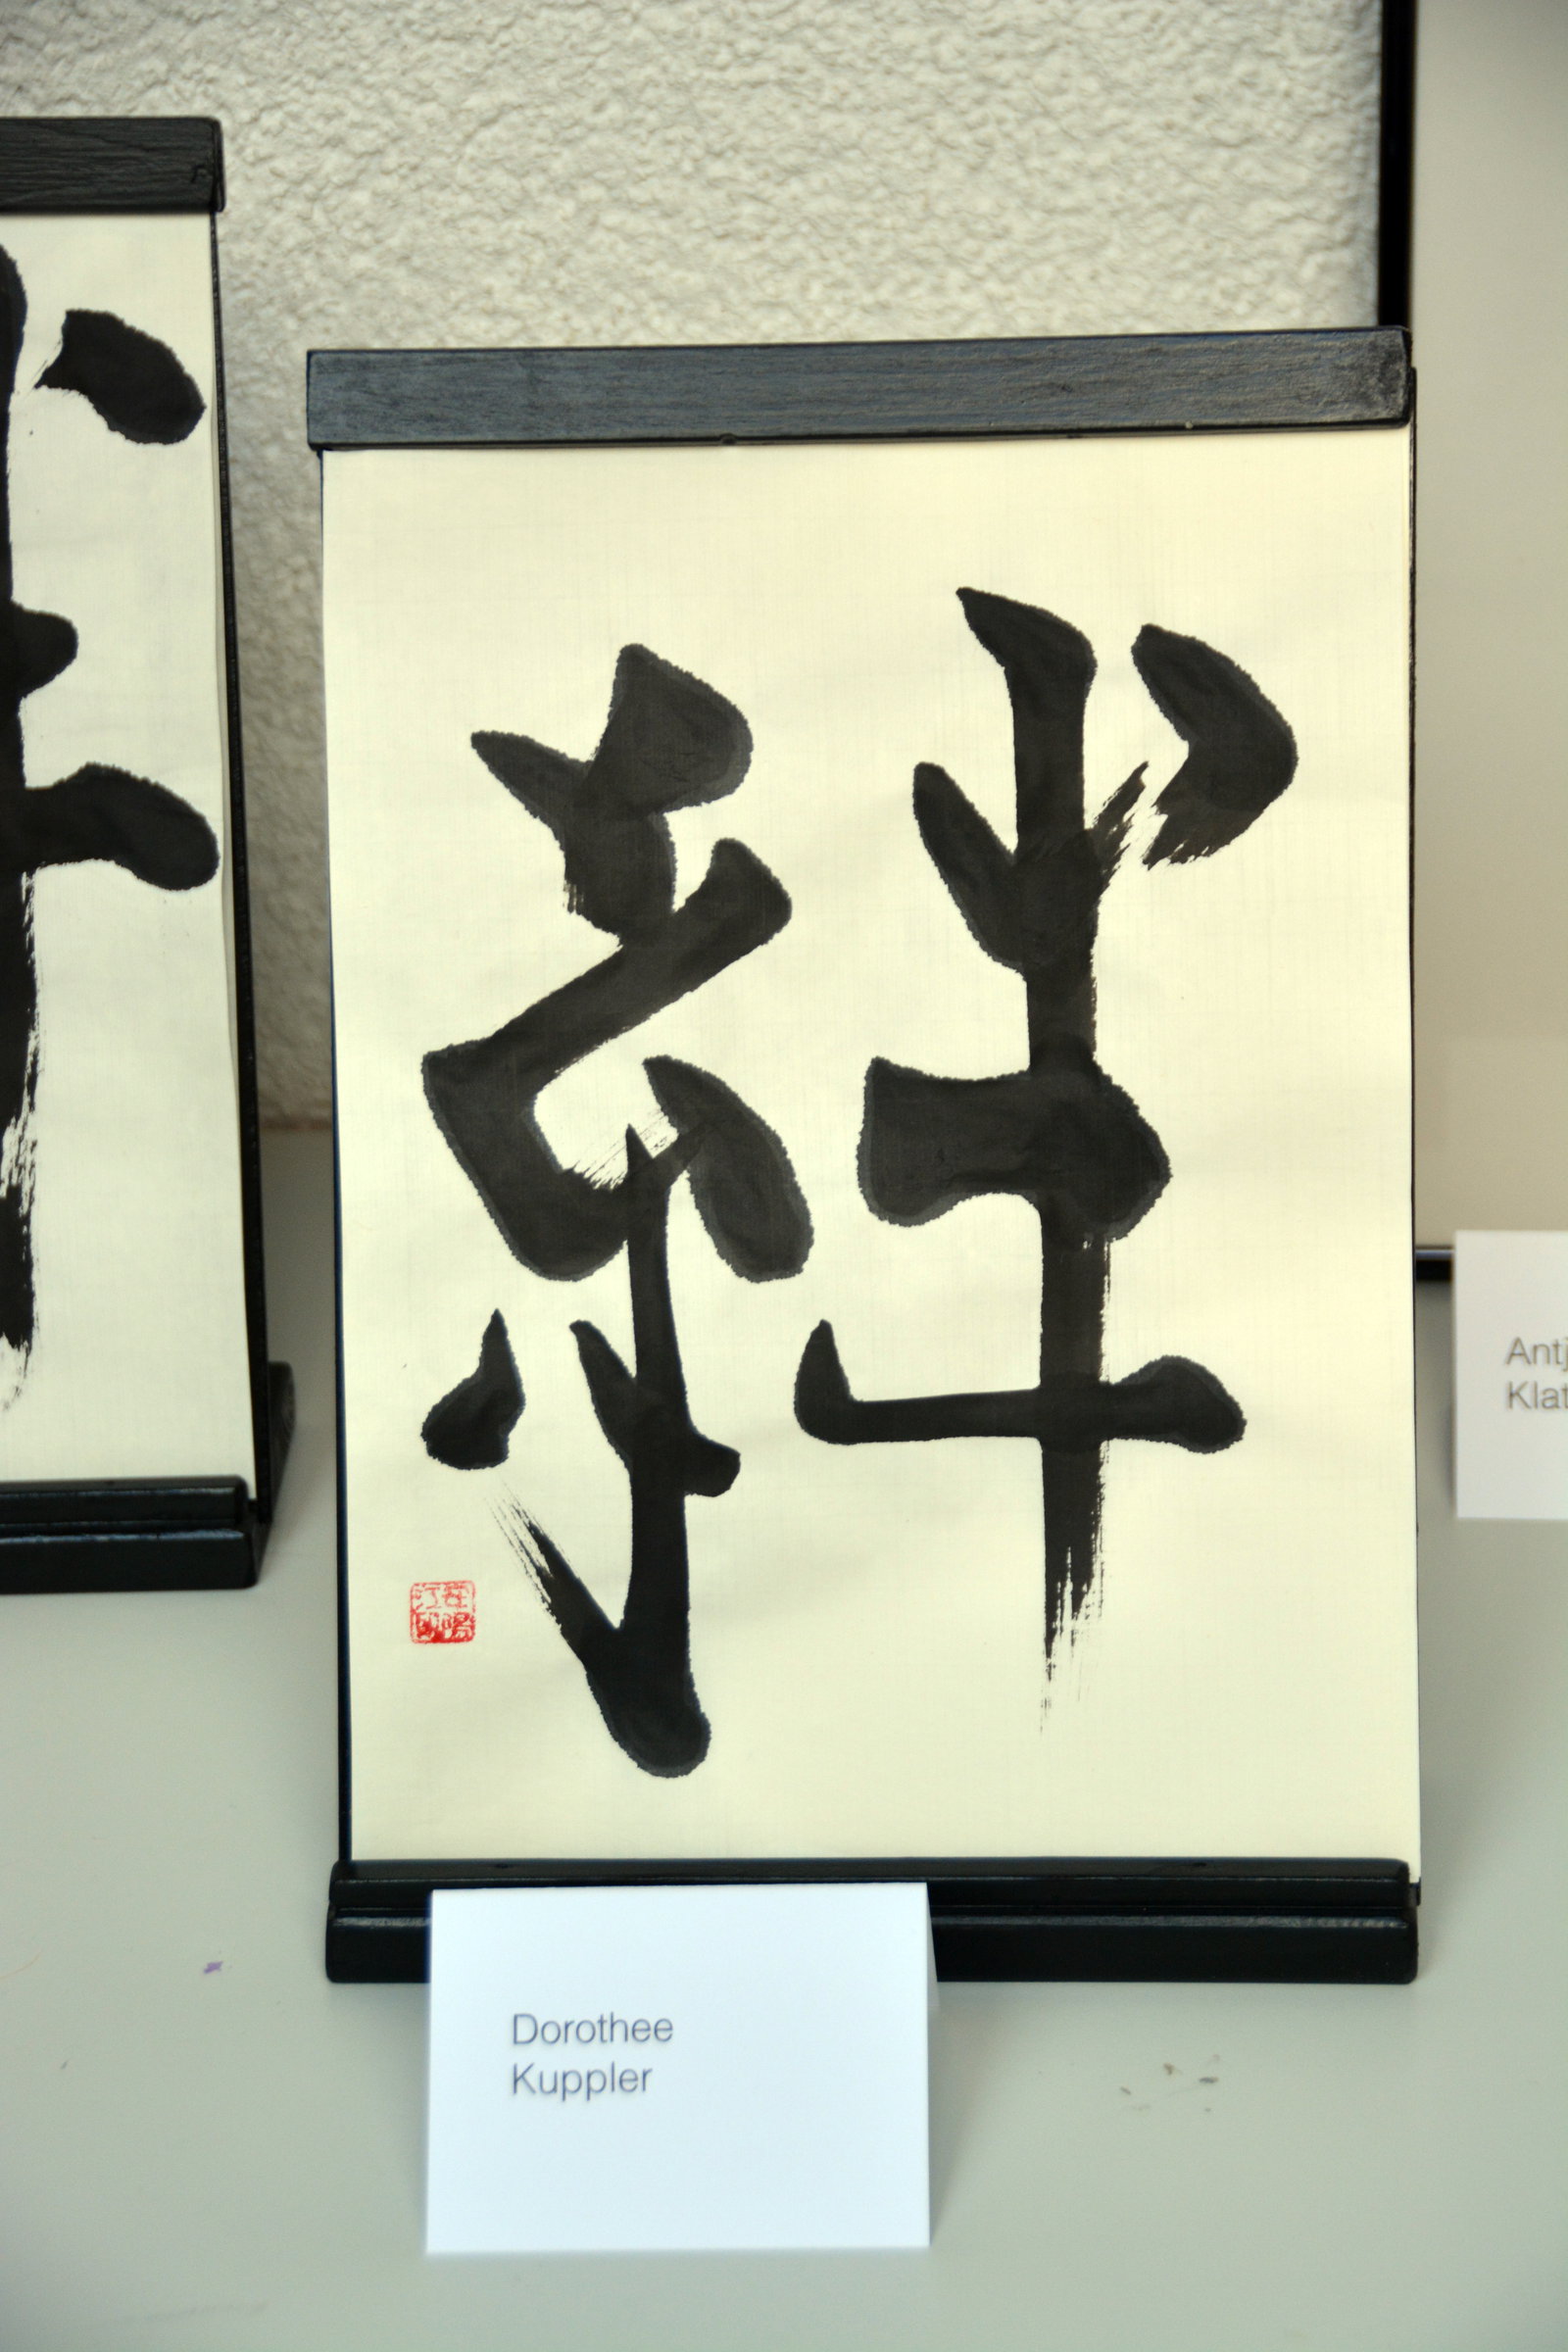 絆
Dorothee
Kuppler
Antj
Klat